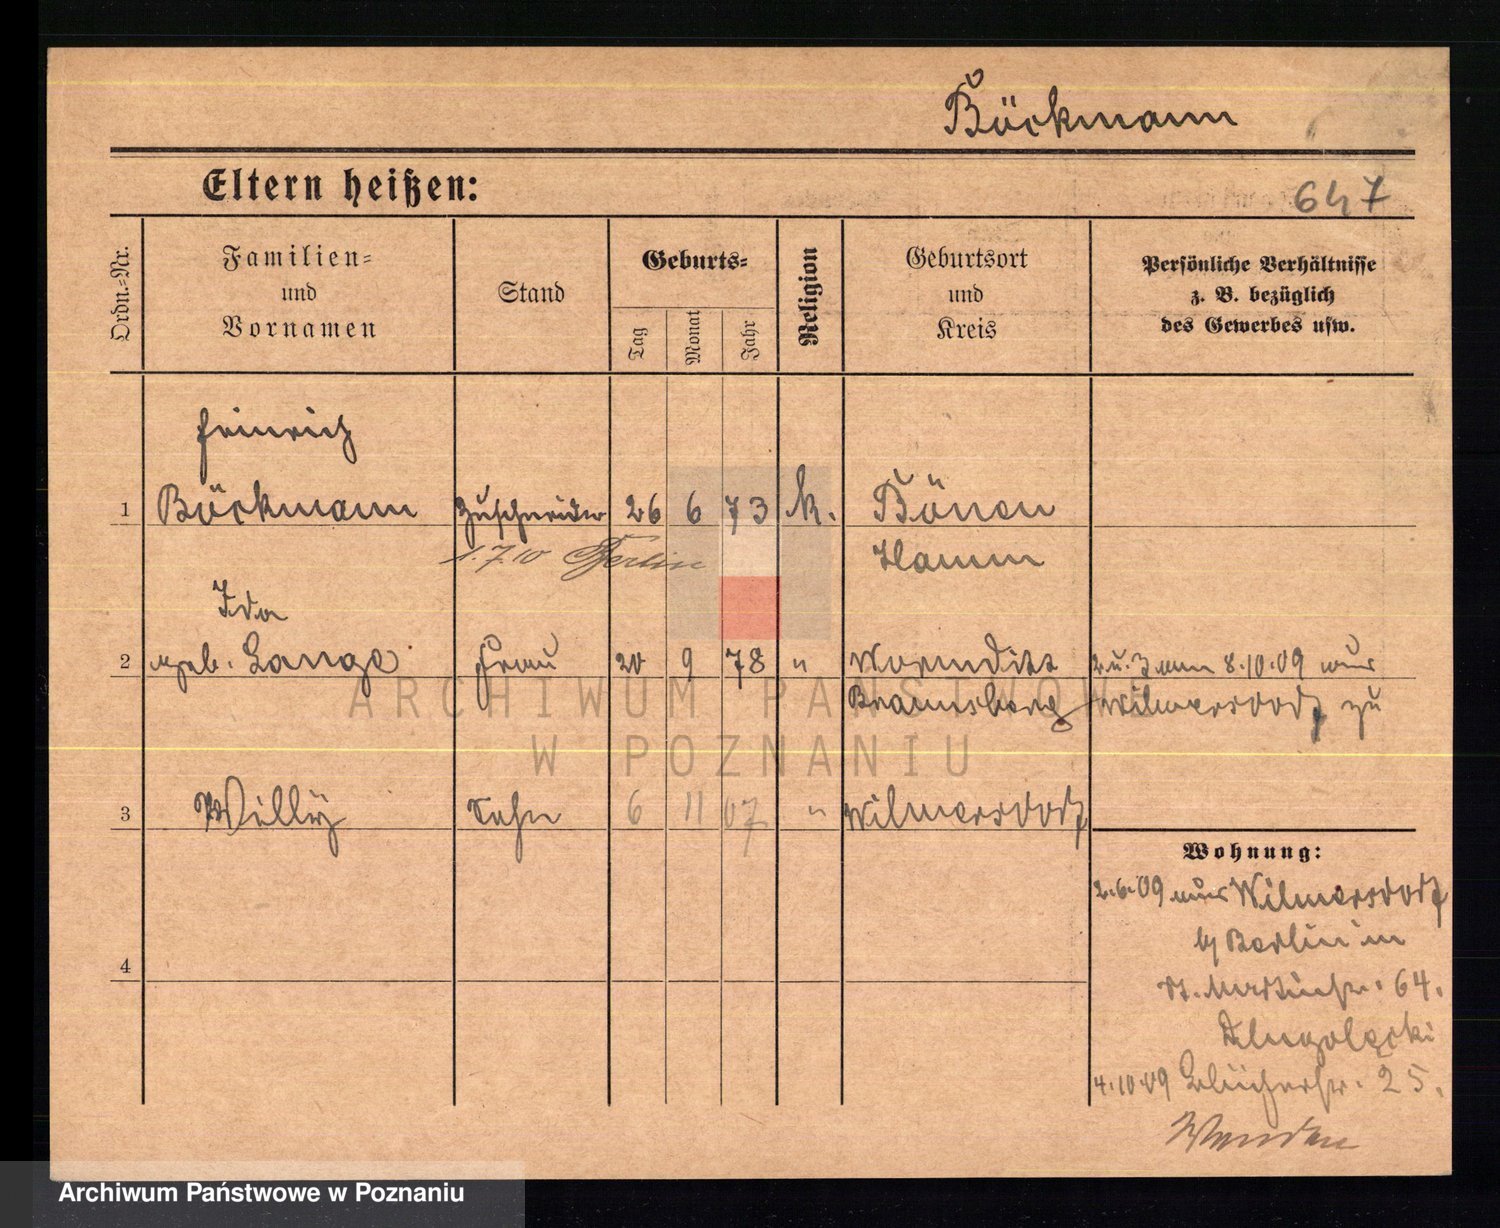 Böckmann
Eltern heißen:
647
Ordn.-Nr.
Familien-
und
Vornamen
Stand
Geburts-
Tag
Monat
Jahr
Religion
Geburtsort
und
Kreis
Persönliche Verhältnisse
z. B. bezüglich
des Gewerbes usw.
Heinrich
1 Böckmann Zuschneider 26 6 73 k. Bönen
1.7.10 Berlin Hamm
Ida
2 geb. Lange Frau 20 9 78 " Wormditt 2 u. 3 am 8.10.09 aus
Braunsberg Wilmersdorf zu
3 Willy Sohn 6 11 07 " Wilmersdorf
Wohnung:
2.6.09 aus Wilmersdorf
b/ Berlin in
4
St. Martinstr. 64.
Dlugolecki
4.10.09 Blücherstr. 25.
ARCHIWUM PAŃSTWOWE
W POZNANIU
Archiwum Państwowe w Poznaniu